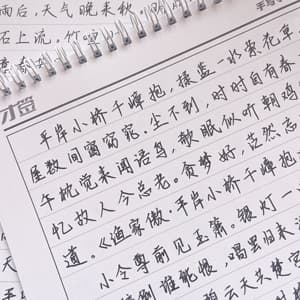 雨后,天气晚来秋,明
石上流。竹喧
才签
平岸小桥千嶂抱,揉蓝一水萦花草。
屋数间窗窈窕。尘不到,时时自有春
午枕觉来闻语鸟,欹眠似听朝鸡
忆故人今总老。贪梦好,茫然忘
道。《渔家傲·平岸小桥千嶂抱
小令尊前见玉箫。银灯一
谁能恨,唱罢归来
云天共楚宫